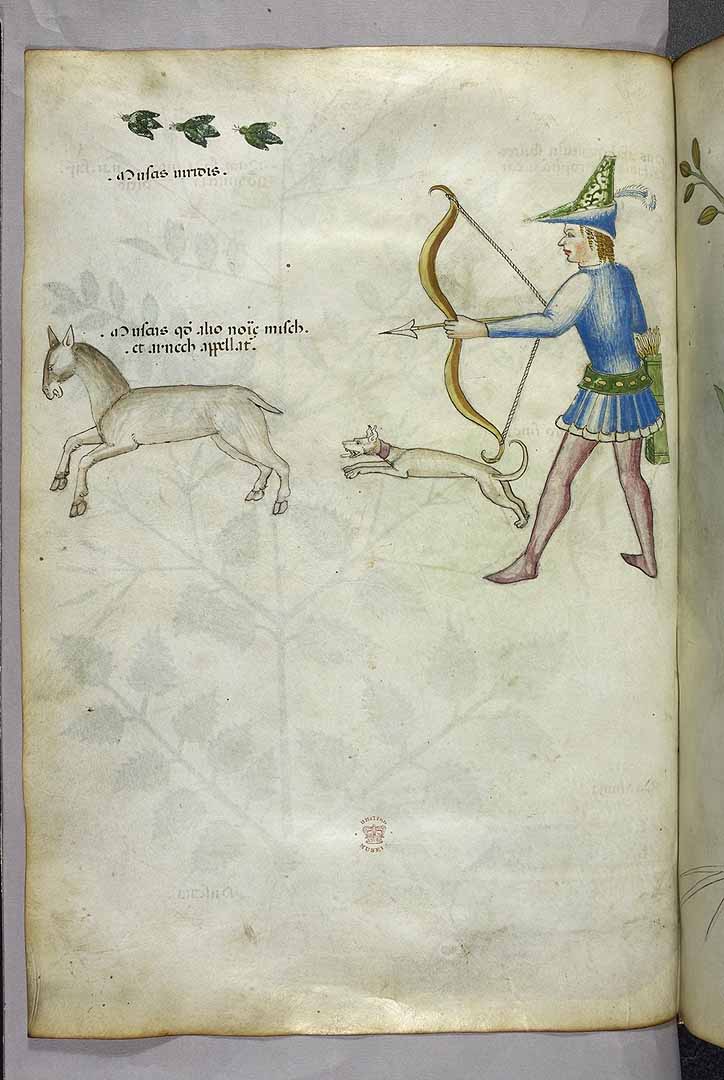 . Muscas uiridis .
. Muscus qđ alio noīe misch .
. et arnech appellat̄ .
BRITISH
MUSEUM